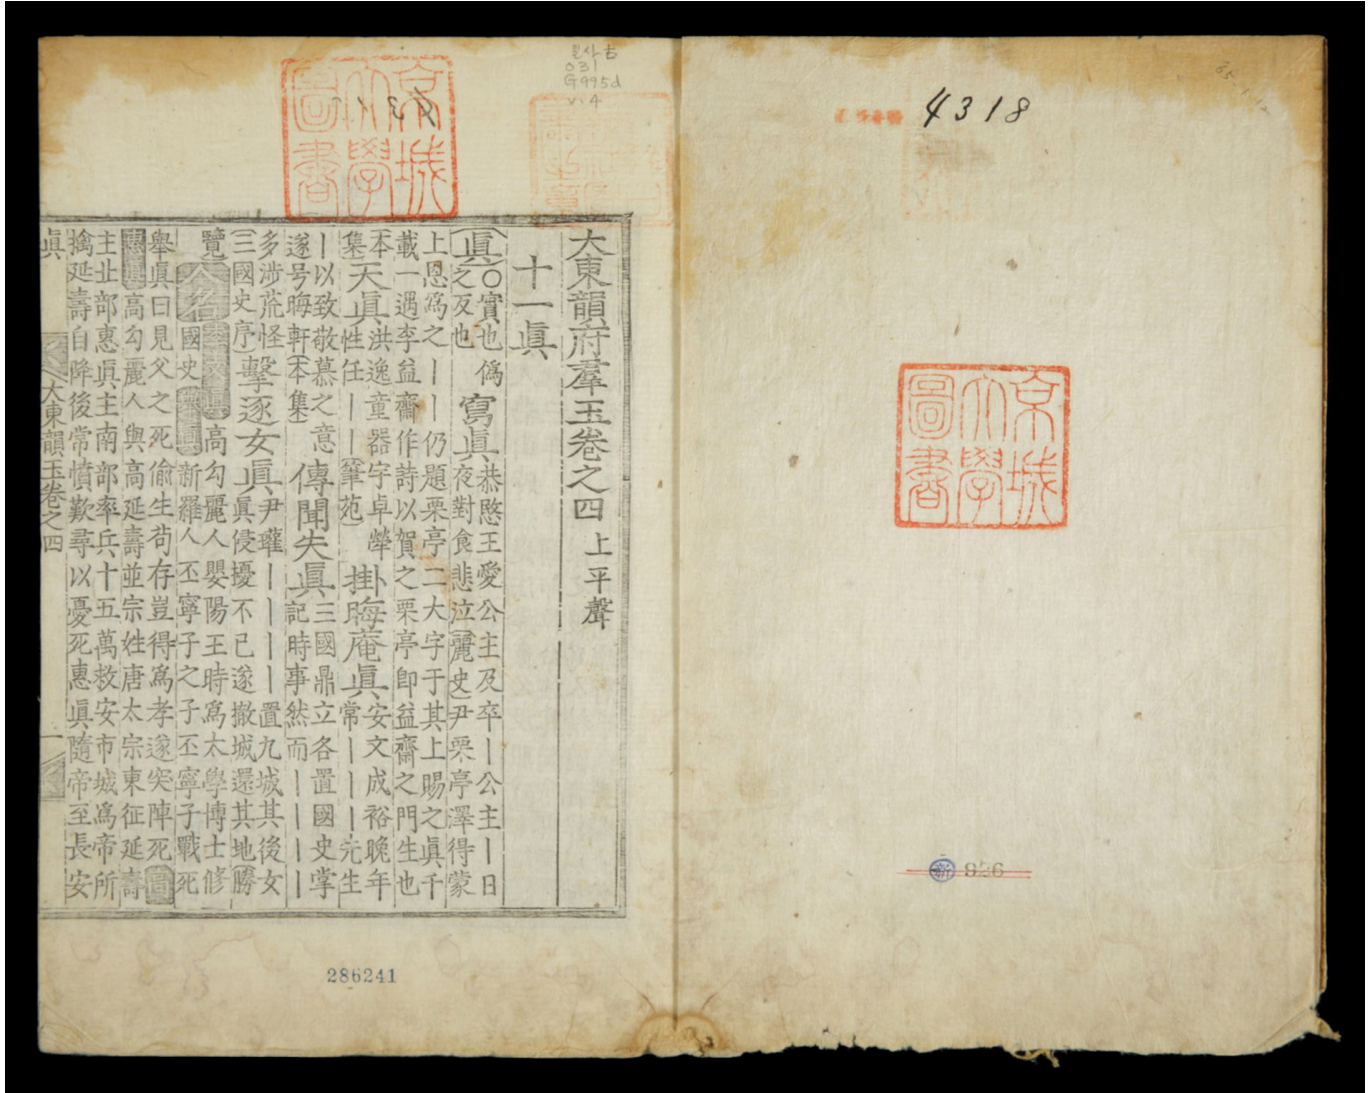 4318
京城
大學
圖書
新 926
일사古
031
G995d
v.4
京城
大學
圖書
大東韻府羣玉卷之四 上平聲
十一眞
眞 ○實也偽之反也 寫眞 恭愍王愛公主及卒丨公主丨日夜對食悲泣(麗史)尹栗亭澤得蒙
上恩爲之丨丨仍題栗亭二大字于其上賜之眞千
載一遇李益齋作詩以賀之栗亭卽益齋之門生也
本集 天眞 洪逸童器字卓犖性任丨丨(筆苑) 掛晦庵眞 安文成裕晚年常丨丨丨丨先生
丨以致敬慕之意遂号晦軒(本集) 傳聞失眞 三國鼎立各置國史掌記時事然而丨丨丨丨
多涉荒怪(三國史序) 擊逐女眞 尹瓘丨丨丨丨置九城其後女眞侵擾不已遂撤城還其地(勝
覽 人名 文眞 高勾麗人嬰陽王時爲太學博士修
國史 眞 新羅人丕寧子之子丕寧子戰死
舉眞曰見父之死偷生苟存豈得爲孝遂突陣死
惠眞 高勾麗人與高延壽並宗姓唐太宗東征延壽
主北部惠眞主南部率兵十五萬救安市城爲帝所
擒延壽自降後常憤歎尋以憂死惠眞隨帝至長安
眞 大東韻玉卷之四 一
286241